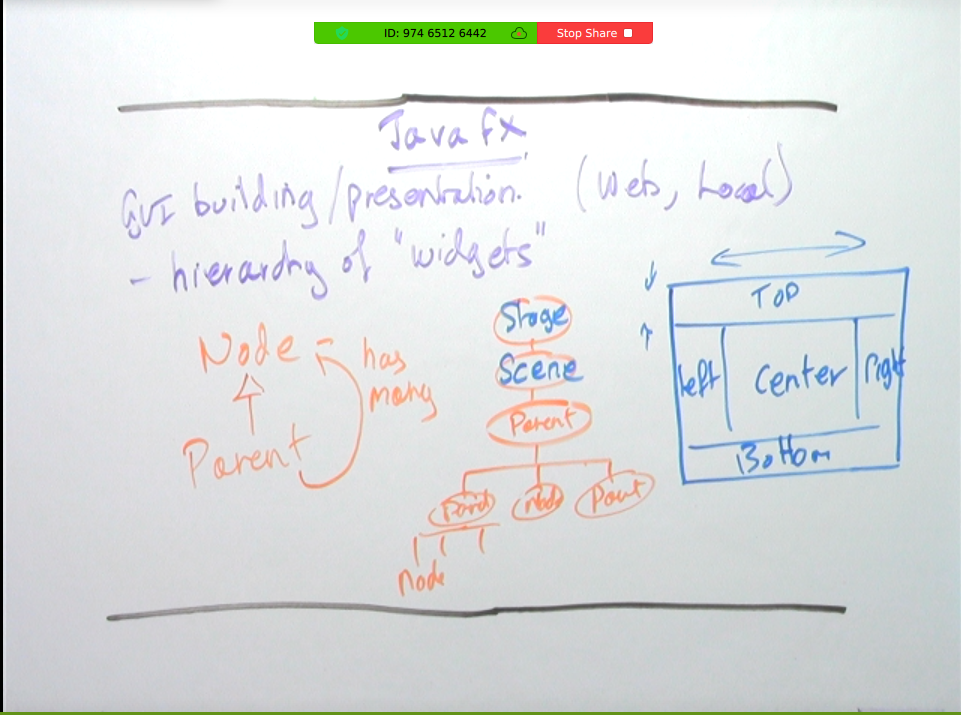 ID: 974 6512 6442 Stop Share
Java FX
GUI building/presentation. (Web, Local)
- hierarchy of "widgets"
Node
has
many
Parent
Stage
Scene
Parent
Node
node
TOP
left Center right
Bottom